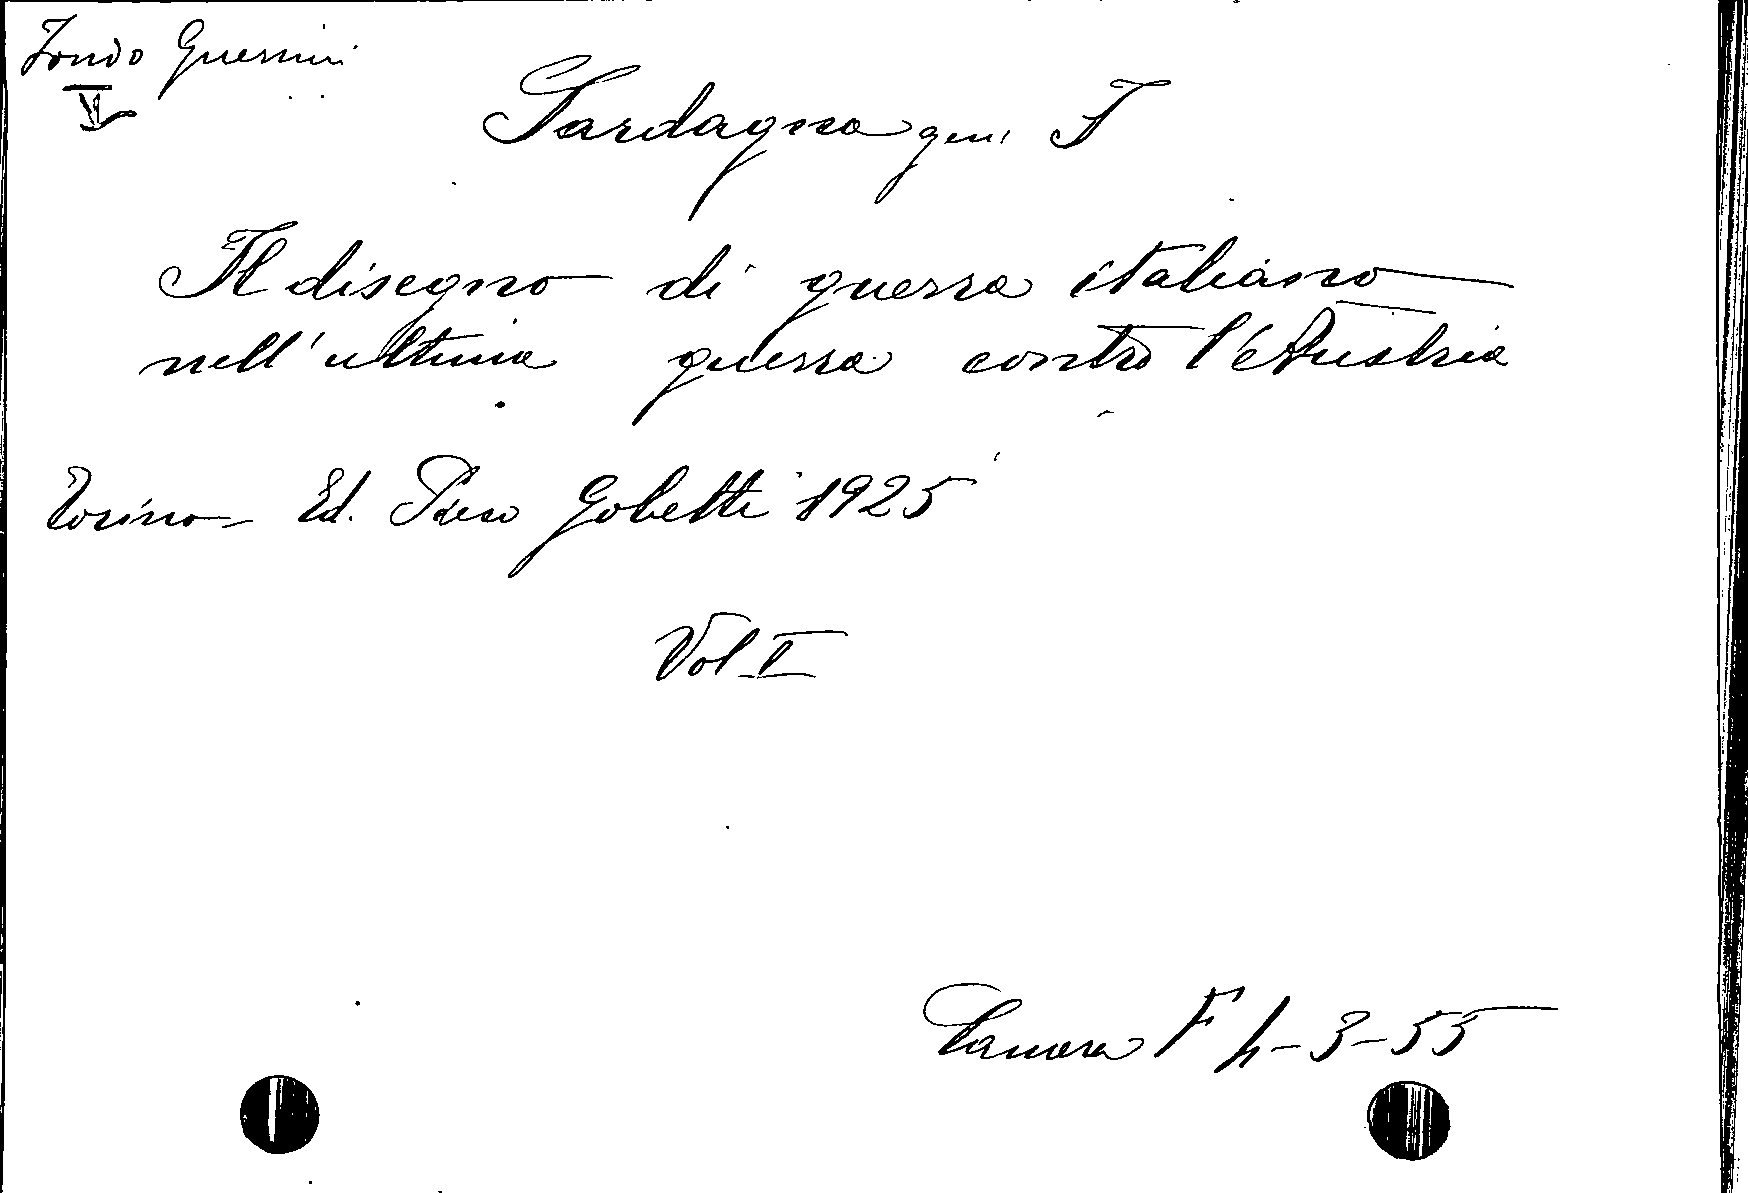 Fondo Guerrini
Sardagna gen. F
Il disegno di guerra italiano
nell'ultima guerra contro l'Austria
Torino - Ed. Piero Gobetti 1925
Vol I
Camera F 4-3-55